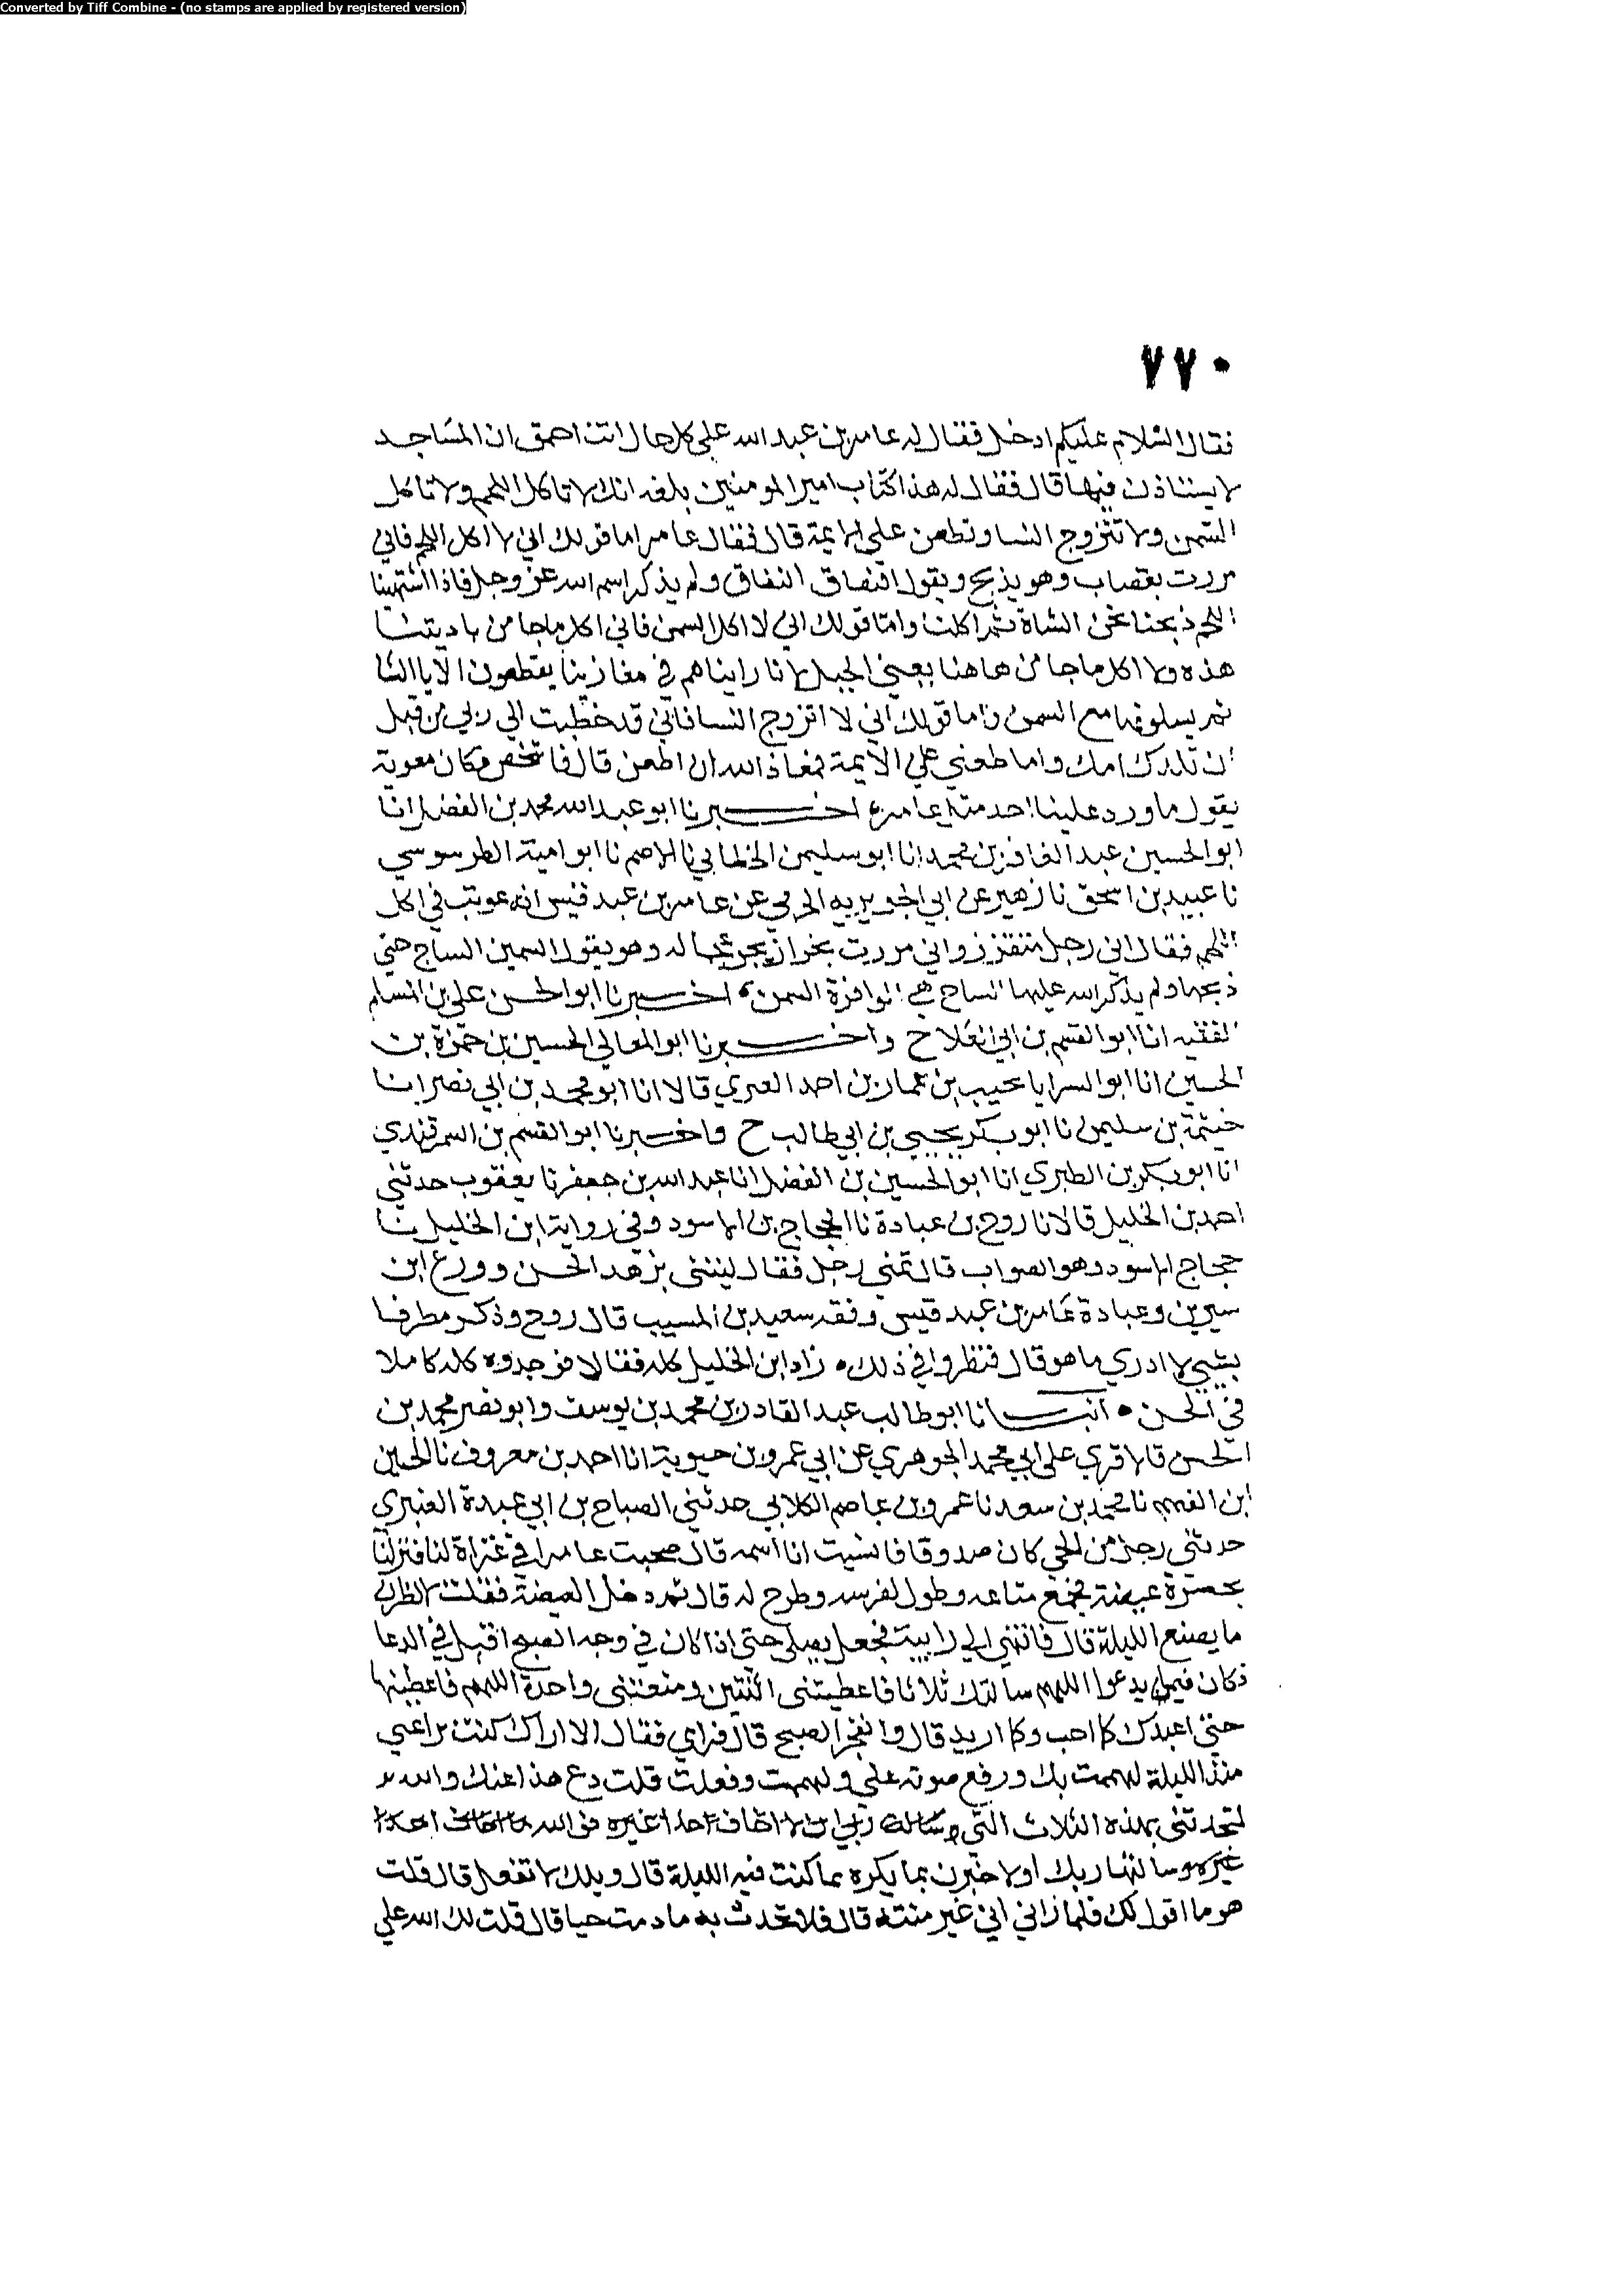 Converted by Tiff Combine - (no stamps are applied by registered version)
٧٧٠
فقال السلام عليكم ادخل فقال له عامر بن عبد الله علي كل حال انت احمق ان المساجد
لا يستاذن فيها قال فقال له هذا كتاب امير المومنين بلغه انك لا تاكل اللحم ولا تاكل
السمن ولا تتزوج النسا وتطعن على الايمة قال فقال عامر اما قولك اني لا اكل اللحم فاني
مررت بقصاب وهو يذبح ويقول النفاق النفاق ولم يذكر اسم الله عز وجل فاذا اشتهينا
اللحم ذبحنا نحن الشاة ثم اكلت واما قولك اني لا اكل السمن فاني اكل ما جا من باديتنا
هذه ولا اكل ما جا من هاهنا يعني الجبل لانا رايناهم في مغازينا يقطعون الايا الشا
ثم يسلونها مع السمن واما قولك اني لا اتزوج النسا فاني قد خطبت الي ربي من قبل
ان تلدك امك واما طعني علي الايمة فمعاذ الله ان اطعن قال فاشخص فكان معوية
يقول ما ورد علينا احد مثل عامر اخبرنا ابو عبد الله محمد بن الفضل انا
ابو الحسين عبد الغافر بن محمد انا ابو سليمن الخطابي نا الاصم نا ابو امية الطرسوسي
نا عبيد بن اسحق نا زهير عن ابي الجويريه الجرمي عن عامر بن عبد قيس انه عوتب في اكل
اللحم فقال اني رجل متقزز واني مررت بجزار يجر شاة له وهو يقول السمين الساح حتي
ذبحها ولم يذكر الله عليها الساح هي الوافرة السمن اخبرنا ابو الحسن علي بن المسلم
الفقيه انا ابو القسم بن ابي العلا ح واخبرنا ابو المعالي الحسين بن حمزة بن
الحسين انا ابو السرايا نجيب بن عمار بن احمد الغنوي قالا انا ابو محمد بن ابي نصر انا
خيثمة بن سليمن نا ابو بكر يحيي بن ابي طالب ح واخبرنا ابو القسم بن السمرقندي
انا ابو بكر بن الطبري انا ابو الحسين بن الفضل انا عبد الله بن جعفر نا يعقوب حدثني
احمد بن الخليل قالا نا روح بن عبادة نا الحجاج بن الاسود وفي رواية ابن الخليل نا
حجاج الاسود وهو الصواب قال تمني رجل فقال ليتني بزهد الحسن وورع ابن
سيرين وعبادة عامر بن عبد قيس وفقه سعيد بن المسيب قال روح وذكر مطرفا
بشيي لا ادري ما هو قال فنظروا في ذلك • زاد ابن الخليل كله فقالا فوجدوه كله كاملا
في الحسن • انبانا ابو طالب عبد القادر بن محمد بن يوسف وابو نصر محمد بن
الحسن قالا قري على ابي محمد الجوهري عن ابي عمرو بن حيوية انا احمد بن معروف نا الحسين
ابن الفهم نا محمد بن سعد نا عمرو بن عاصم الكلابي حدثني الصباح بن ابي عبدة العنبري
حدثني رجل من الحي كان صدوقا فانسيت انا اسمه قال صحبت عامرا في غزاة لنا فنزلنا
بحضرة غيضة فجمع متاعه وطول لفرسه وطرح له قال ثم دخل الغيضة فقلت لانظرن
ما يصنع الليلة قال فانتهي الي رابية فجعل يصلي حتى اذا كان في وجه الصبح اقبل في الدعا
فكان فيما يدعوا اللهم سالتك ثلاثا فاعطيتني اثنتين ومنعتني واحدة اللهم فاعطنيها
حتى اعبدك كما احب وكما اريد قال وانفجر الصبح قال فراي فقال الا اراك كنت تراعي
منذ الليلة لهممت بك ورفع صوته علي ولهممت وفعلت قلت دع هذا عنك والله
لتحدثني بهذه الثلاث التي سالت ربك
غيره وسالتها ربك او لاخبرن بما يكره مما كنت فيه الليلة قال ويلك لا تفعل قال قلت
هو ما اقول لك فلما راني اني غير منته قال فلا تحدث به ما دمت حيا قال قلت لك الله علي